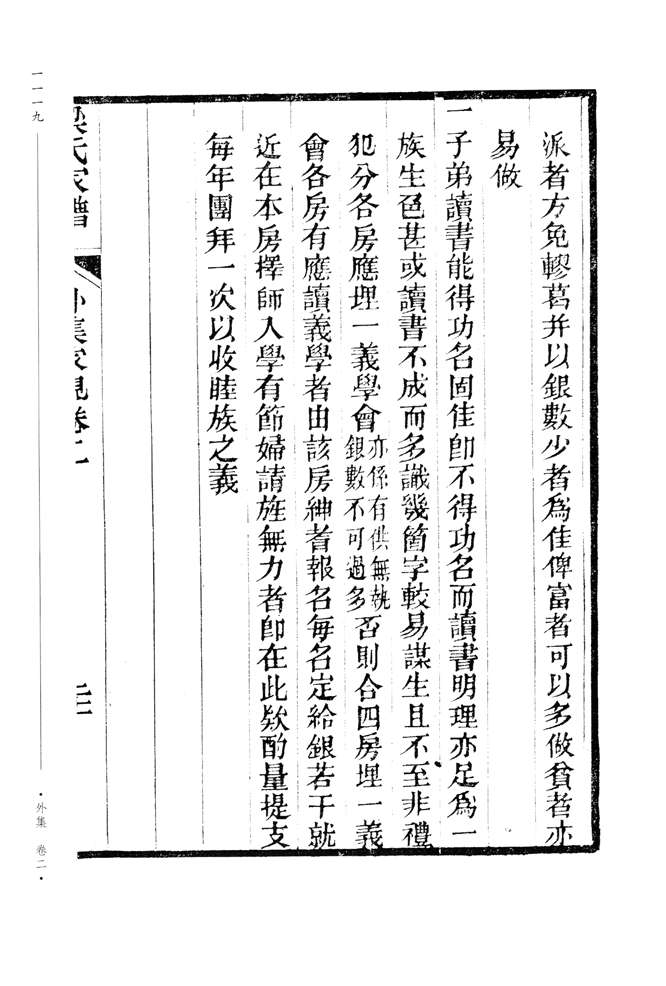 派者方免轇葛并以銀數少者爲佳俾富者可以多做貧者亦
易做
一子弟讀書能得功名固佳卽不得功名而讀書明理亦足爲一
族生色甚或讀書不成而多識幾箇字較易謀生且不至非禮
犯分各房應埋一義學會亦係有供無執銀數不可過多否則合四房埋一義
會各房有應讀義學者由該房紳耆報名每名定給銀若干就
近在本房擇師入學有節婦請旌無力者卽在此欵酌量提支
每年團拜一次以收睦族之義
氏家譜 外集家規卷二
二十一
一一一九
·外集 卷二·